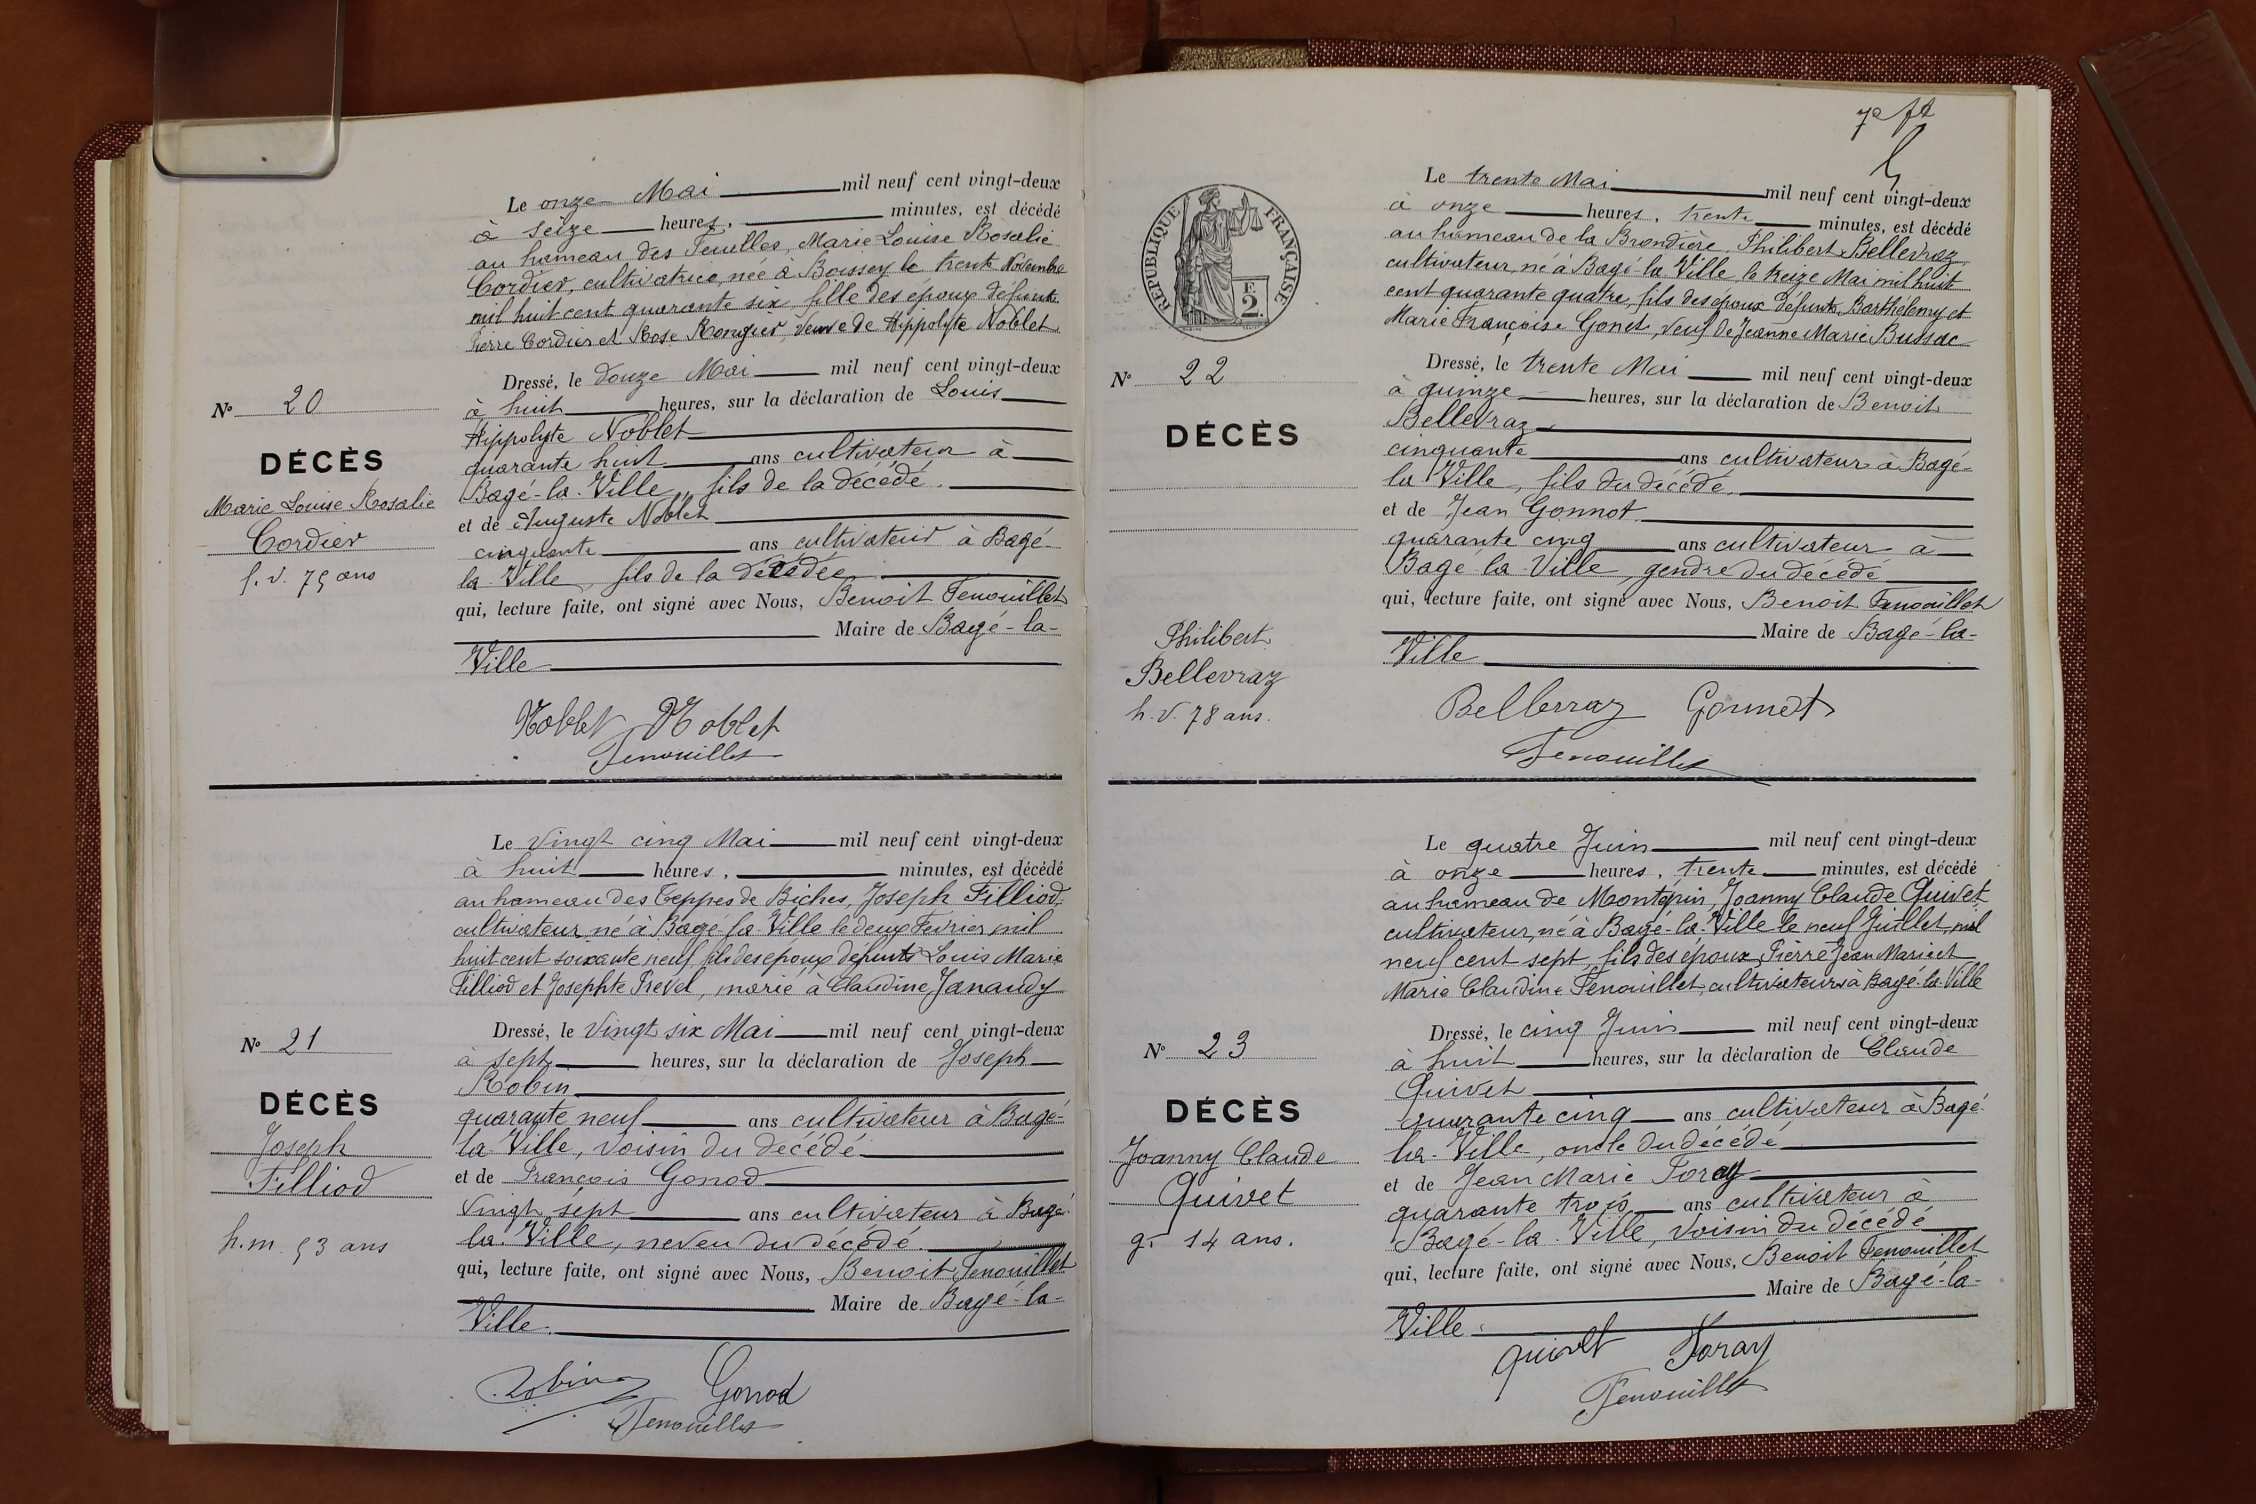 Le onze Mai mil neuf cent vingt-deux
à seize heures, minutes, est décédé
au hameau des Marie Louise Rosalie
Cordier, cultivatrice, née à Boissey le trente Novembre
mil huit cent quarante six, fille des époux défunts
Pierre Cordier et Rose veuve de Hippolyte Noblet
Nº 20
DÉCÈS
Marie Louise Rosalie
Cordier
f. v. 75 ans
Dressé, le douze Mai mil neuf cent vingt-deux
à huit heures, sur la déclaration de Louis
Hippolyte Noblet
quarante huit ans cultivateur à
Bagé-la-Ville, fils de la décédé.
et de Auguste Noblet
cinquante ans cultivateur à Bagé-
la Ville, fils de la décédée
qui, lecture faite, ont signé avec Nous, Benoit Fenouillet
Maire de Bagé-la-
Ville
Noblet Noblet
Fenouillet
Le vingt cinq Mai mil neuf cent vingt-deux
à huit heures, minutes, est décédé
au hameau des Teppes de Biches, Joseph Filliod,
cultivateur, né à Bagé-la-Ville le deux Février mil
huit cent soixante neuf, fils des époux défunts Louis Marie
Filliod et Josephte Prevel, marié à Claudine Janaudy
Nº 21
DÉCÈS
Joseph
Filliod
h. m. 53 ans
Dressé, le vingt six Mai mil neuf cent vingt-deux
à sept heures, sur la déclaration de Joseph
Robin
quarante neuf ans cultivateur à Bagé-
la Ville, voisin du décédé
et de François Gonod
vingt sept ans cultivateur à Bagé-
la Ville, neveu du décédé.
qui, lecture faite, ont signé avec Nous, Benoit Fenouillet
Maire de Bagé-la-
Ville.
Robin Gonod
Fenouillet
7e ft
RÉPUBLIQUE FRANÇAISE
2F.
Le trente Mai mil neuf cent vingt-deux
à onze heures, trente minutes, est décédé
au hameau de la Brondière, Philibert Bellevraz
cultivateur, né à Bagé-la-Ville, le treize Mai mil huit
cent quarante quatre, fils des époux défunts Barthélemy et
Marie Françoise Gonet, veuf de Jeanne Marie Bussac
Nº 22
DÉCÈS
Philibert
Bellevraz
h. v. 78 ans.
Dressé, le trente Mai mil neuf cent vingt-deux
à quinze heures, sur la déclaration de Benoit
Bellevraz
cinquante ans cultivateur à Bagé-
la Ville, fils du décédé,
et de Jean Gonnot
quarante cinq ans cultivateur à
Bagé la Ville, gendre du décédé
qui, lecture faite, ont signé avec Nous, Benoit Fenouillet
Maire de Bagé-la-
Ville
Bellevraz Gonnot
Fenouillet
Le quatre Juin mil neuf cent vingt-deux
à onze heures, trente minutes, est décédé
au hameau de Montépin, Joanny Claude Quivet
cultivateur, né à Bagé-la-Ville le neuf Juillet mil
neuf cent sept, fils des époux Pierre Jean Marie et
Marie Claudine Fenouillet, cultivateurs à Bagé-la-Ville
Nº 23
DÉCÈS
Joanny Claude
Quivet
g. 14 ans.
Dressé, le cinq Juin mil neuf cent vingt-deux
à huit heures, sur la déclaration de Claude
Quivet
quarante cinq ans cultivateur à Bagé-
la-Ville, oncle du décédé
et de Jean Marie Foray
quarante trois ans cultivateur à
Bagé-la-Ville, voisin du décédé
qui, lecture faite, ont signé avec Nous, Benoit Fenouillet
Maire de Bagé-la-
Ville.
Quivet Foray
Fenouillet